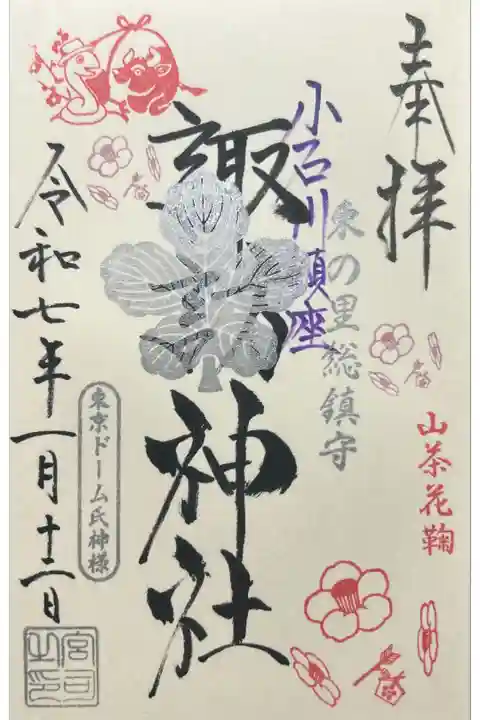 奉拝
山茶花鞠
東の里総鎮守
小石川
諏訪神社
令和七年一月十二日
東京ドーム氏神様
宮司之印